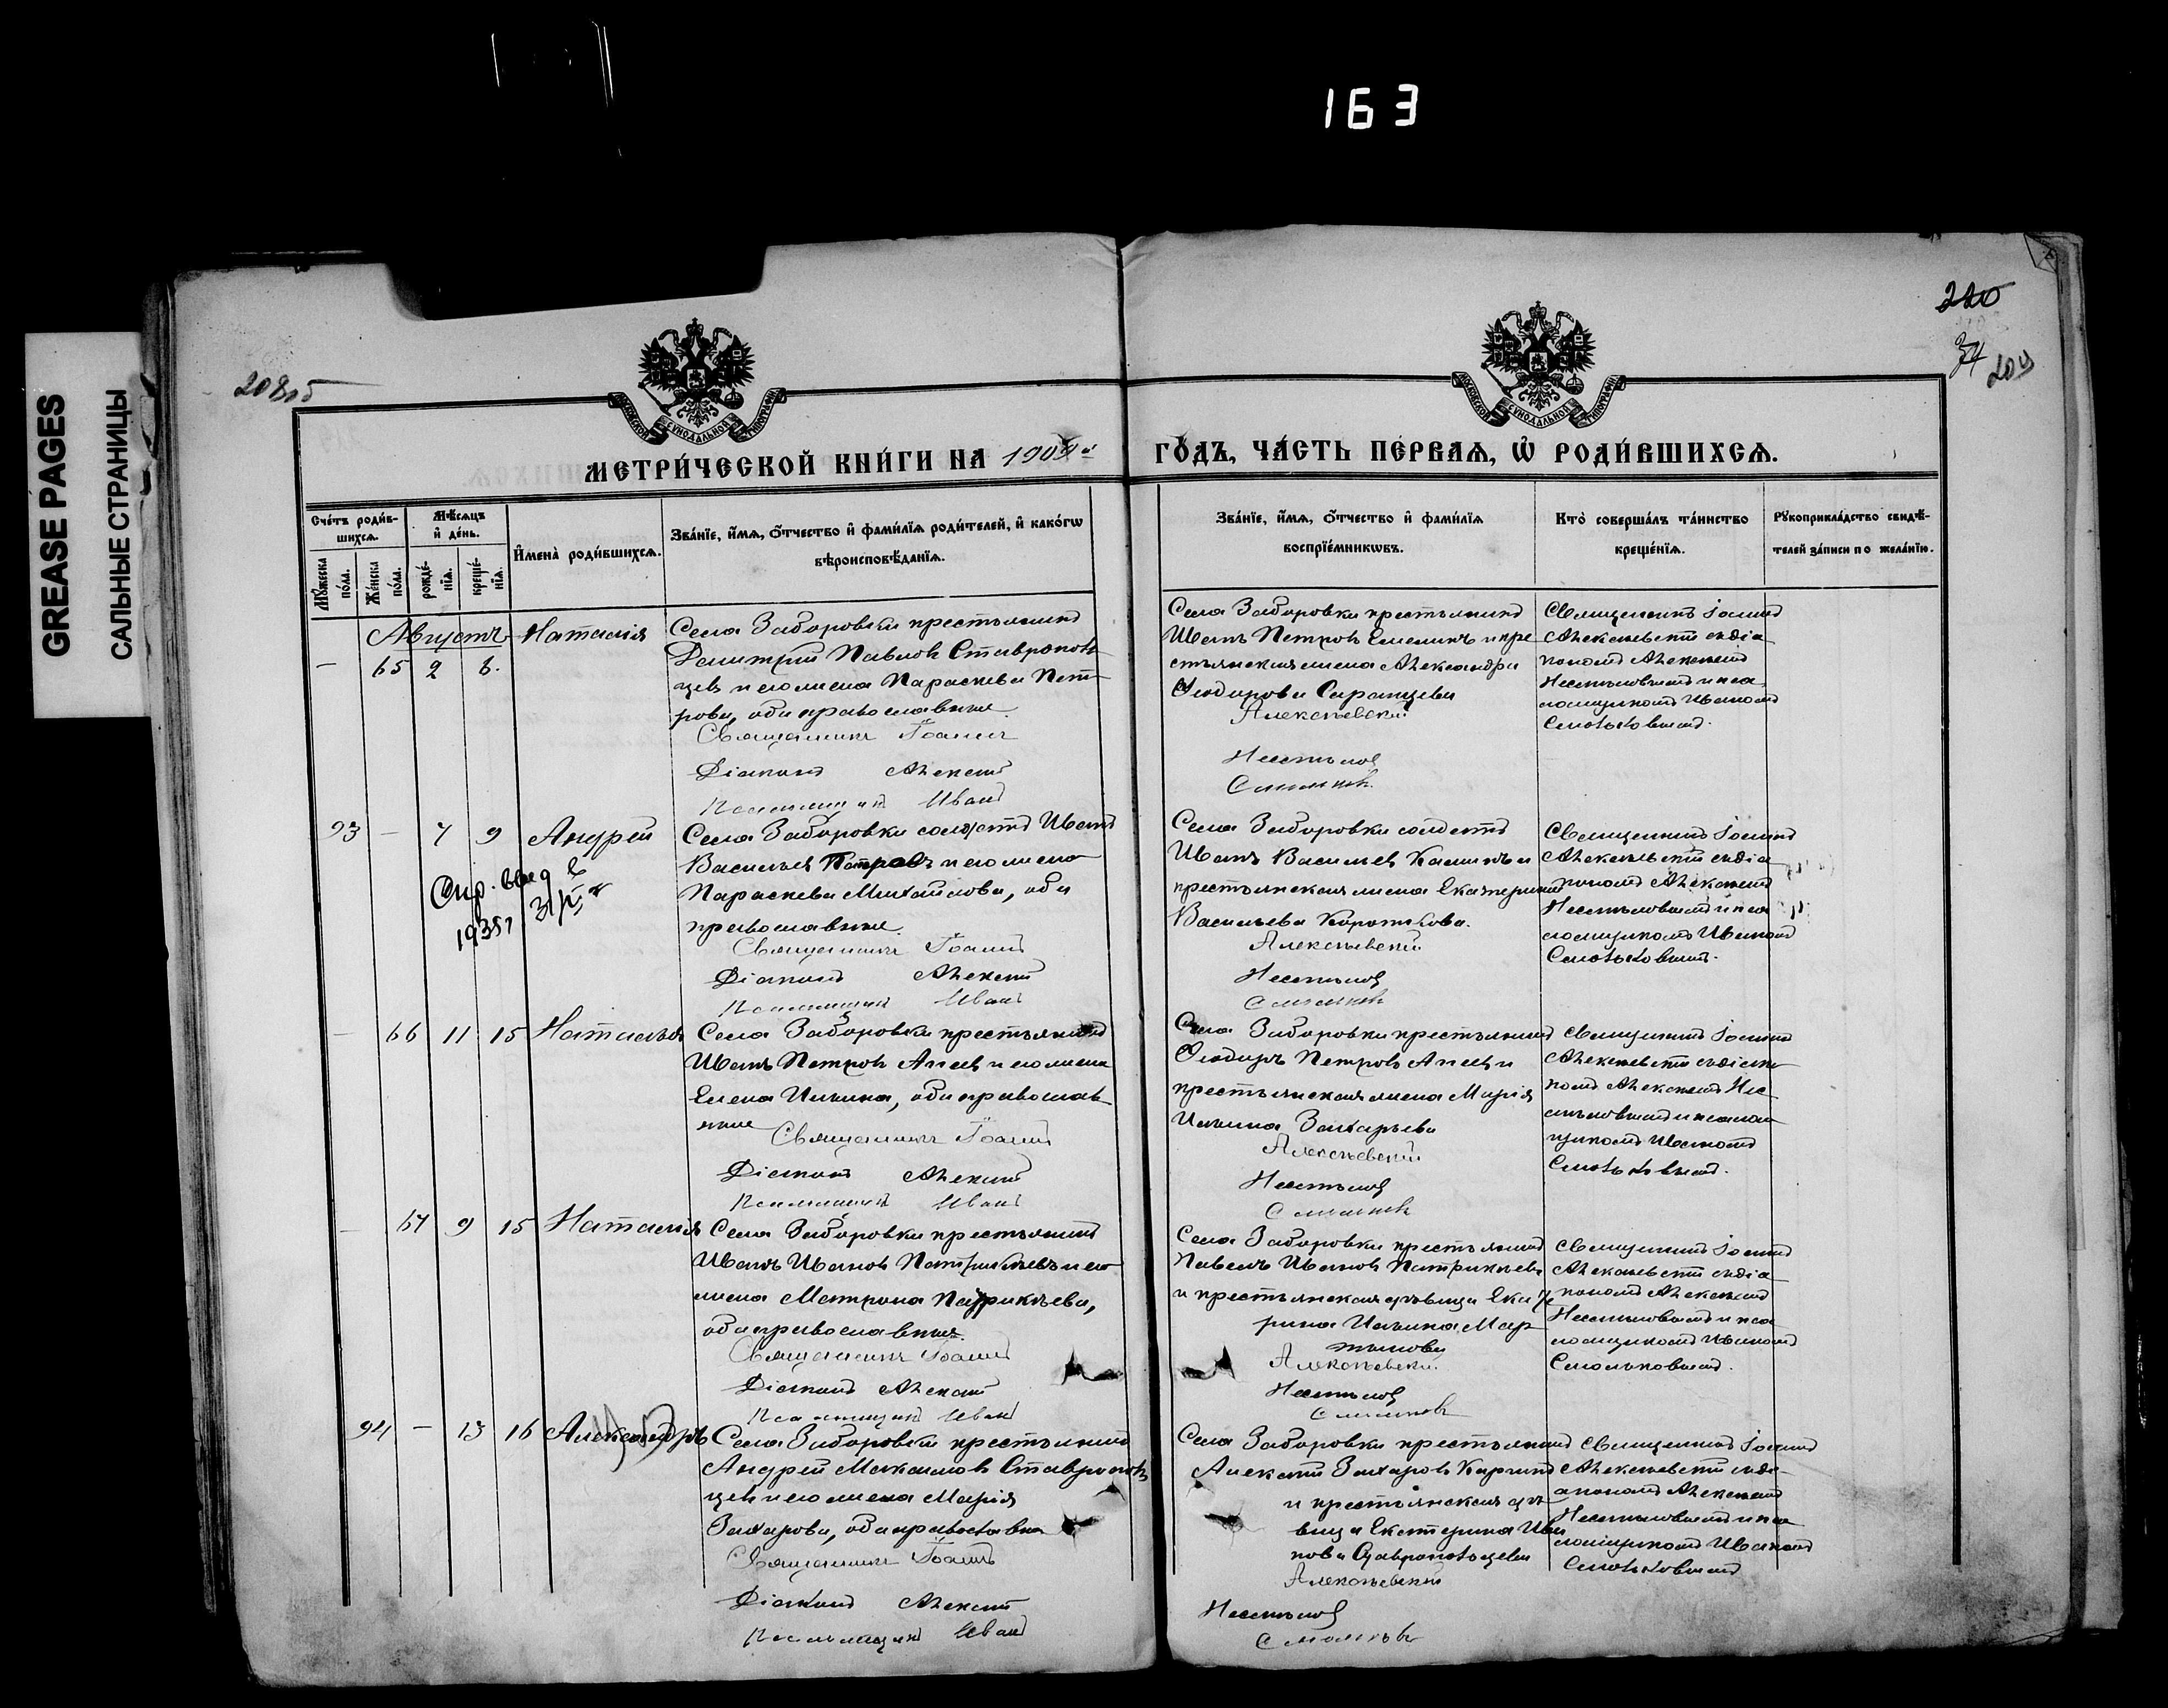 163
GREASE PAGES
САЛЬНЫЕ СТРАНИЦЫ
208об
220
34
209
МОСКОВСКОЙ СѴНОДАЛЬНОЙ ТИПОГРАФІИ
МОСКОВСКОЙ СѴНОДАЛЬНОЙ ТИПОГРАФІИ
МЕТРИ́ЧЕСКОЙ КНИ́ГИ НА 1909й
ГО́ДЪ, ЧА́СТЬ ПЕ́РВАѦ, Ѡ҆ РОДИ́ВШИХСѦ.
Сче́тъ роди́в-
шихсѧ.
Мѹ́жеска по́ла.
Же́нска по́ла.
Мѣ́сѧцъ
и҆ де́нь.
рожде́-нїѧ.
креще́-нїѧ.
И҆мена̀ роди́вшихсѧ.
Зва́нїе, и҆́мѧ, ѻ҆́тчество и҆ фами́лїѧ роди́телей, и҆ како́гѡ
вѣроисповѣ́данїѧ.
Зва́нїе, и҆́мѧ, ѻ҆́тчество и҆ фами́лїѧ
воспрїе́мникѡвъ.
Кто̀ соверша́лъ та́инство
креще́нїѧ.
Рѹкоприкла́дство свидѣ́-
телей за́писи по жела́нїю.
Августъ
— 65 2 8. Наталія
Села Заборовки крестьянинъ
Димитрій Павловъ Ставрополь
цевъ и его жена Параскева Пет-
рова, оба православные.
Священникъ Іоаннъ
Діаконъ Алексій
Псаломщикъ Иванъ
Села Заборовки крестьянинъ
Иванъ Петровъ Емелинъ и кре
стьянская жена Александра
Ѳеодорова Саранцева
Алексѣевскій
Несмѣловъ
Смольковъ
Священникъ Іоаннъ
Алексѣевскій съ діа
кономъ Алексѣемъ
Несмѣловымъ и пса
ломщикомъ Иваномъ
Смольковымъ.
93 — 7 9 Андрей
1935г
Села Заборовки солдатъ Иванъ
Васильевъ и его жена
Параскева Михайлова, оба
православные.
Священникъ Іоаннъ
Діаконъ Алексій
Псаломщикъ Иванъ
Села Заборовки солдатъ
Иванъ Васильевъ Калинкинъ и
крестьянская жена Екатерина
Васильева Короткова.
Алексѣевскій
Несмѣловъ
Смольковъ
Священникъ Іоаннъ
Алексѣевскій съ діа
кономъ Алексѣемъ
Несмѣловымъ и пса
ломщикомъ Иваномъ
Смольковымъ.
— 66 11 15 Наталья
Села Заборовки крестьянинъ
Иванъ Петровъ и его жена
Елена Ильина, оба православ-
ные
Священникъ Іоаннъ
Діаконъ Алексій
Псаломщикъ Иванъ
Села Заборовки крестьянинъ
Ѳеодоръ Петровъ и
крестьянская жена Марія
Ильина Захарьева
Алексѣевскій
Несмѣловъ
Смольковъ
Священникъ Іоаннъ
Алексѣевскій съ діако
номъ Алексѣемъ Нес
мѣловымъ и псалом
щикомъ Иваномъ
Смольковымъ.
— 67 9 15 Наталія
Села Заборовки крестьянинъ
Иванъ Ивановъ Патрикѣевъ и его
жена Матрона Патрикѣева,
оба православные.
Священникъ Іоаннъ
Діаконъ Алексій
Псаломщикъ Иванъ
Села Заборовки крестьянинъ
Павелъ Ивановъ Патрикѣевъ
и крестьянская дѣвица Екате
рина Ильина Мар
тынова
Алексѣевскій
Несмѣловъ
Смольковъ
Священникъ Іоаннъ
Алексѣевскій съ діа
кономъ Алексѣемъ
Несмѣловымъ и пса
ломщикомъ Иваномъ
Смольковымъ.
94 — 13 16 Александръ
Села Заборовки крестьянинъ
Андрей Максимовъ Ставрополь
цевъ и его жена Марія
Захарова, оба православные
Священникъ Іоаннъ
Діаконъ Алексій
Псаломщикъ Иванъ
Села Заборовки крестьянинъ
Алексѣй Захаровъ Каргинъ
и крестьянская дѣ
вица Екатерина Ива
нова Ставропольцева
Алексѣевскій
Несмѣловъ
Смольковъ
Священникъ Іоаннъ
Алексѣевскій съ ді
акономъ Алексѣемъ
Несмѣловымъ и пса
ломщикомъ Иваномъ
Смольковымъ